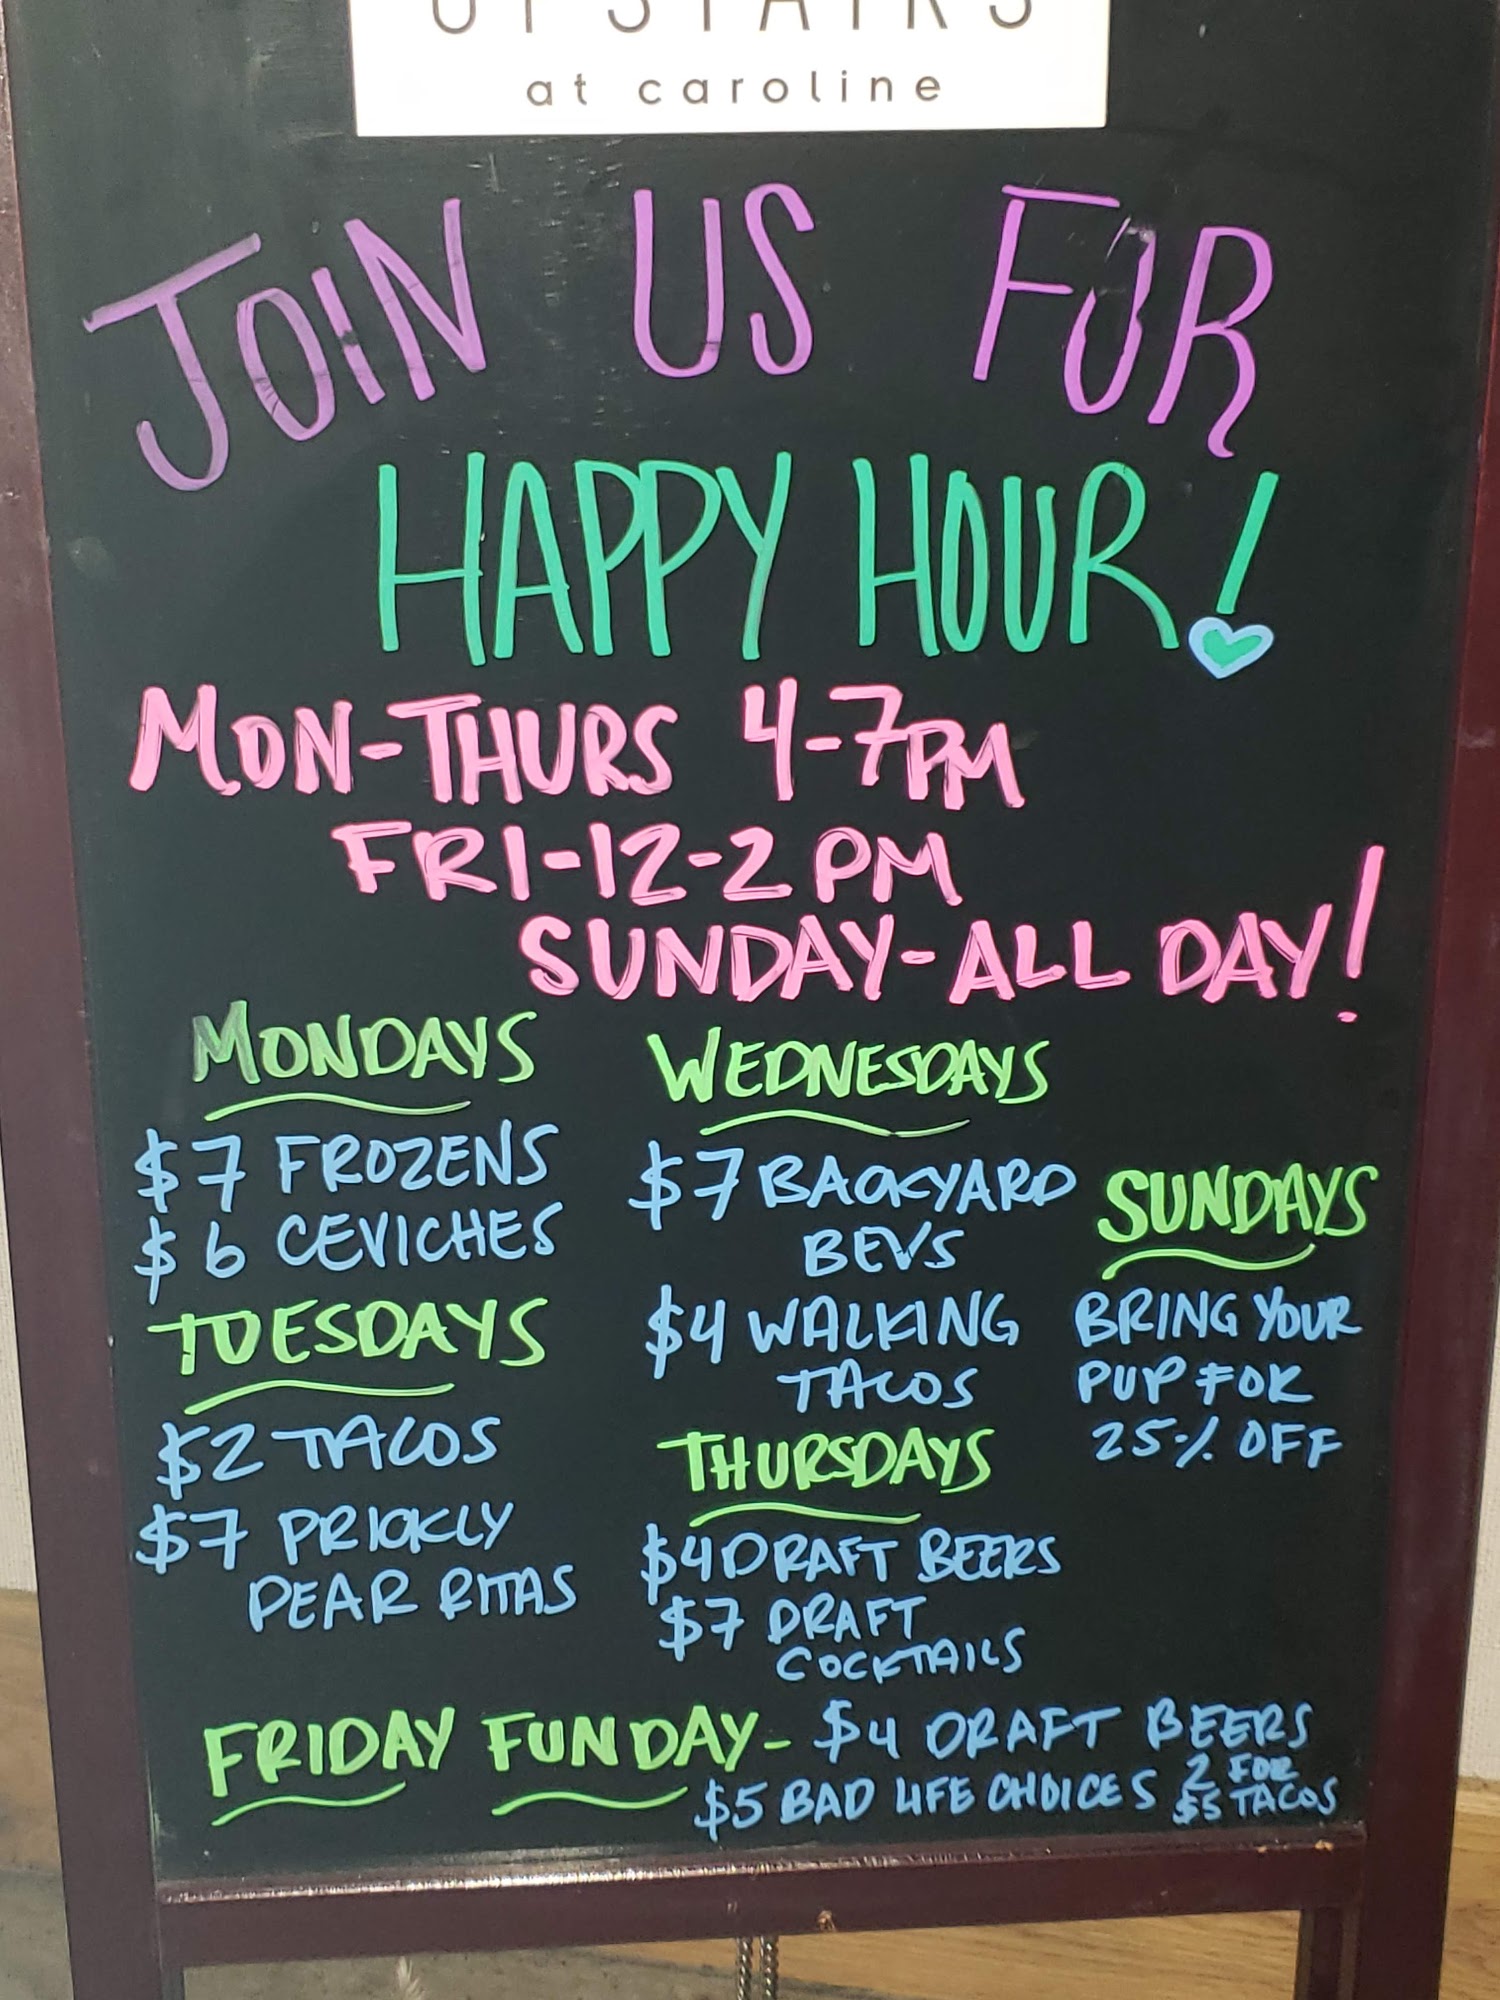 UPSTAIRS
at caroline
JOIN US FOR
HAPPY HOUR!
MON-THURS 4-7PM
FRI-12-2 PM
SUNDAY-ALL DAY!
MONDAYS
$7 FROZENS
$6 CEVICHES
TUESDAYS
$2 TACOS
$7 PRICKLY
PEAR RITAS
WEDNESDAYS
$7 BACKYARD
BEVS
$4 WALKING
TACOS
THURSDAYS
$4 DRAFT BEERS
$7 DRAFT
COCKTAILS
SUNDAYS
BRING YOUR
PUP FOR
25% OFF
FRIDAY FUNDAY- $4 DRAFT BEERS
$5 BAD LIFE CHOICES 2 FOR
$5 TACOS